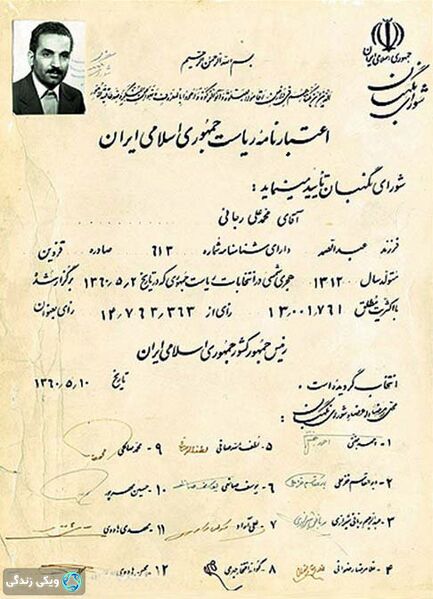 جمهوری اسلامی ایران
شورای نگهبان
بسم الله الرحمن الرحیم
اعتبارنامهٔ ریاست جمهوری اسلامی ایران
شورای نگهبان تأیید مینماید:
آقای محمدعلی رجائی
فرزند عبدالصمد دارای شناسنامه شماره ۶۱۳ صادره قزوین
متولد سال ۱۳۱۲ هجری شمسی در انتخابات ریاست جمهوری که در تاریخ ۱۳۶۰،۵،۲ برگزار شد
با اکثریت مطلق ۱۳،۰۰۱،۷۶۱ رأی از ۱۴،۷۶۳،۳۶۳ رأی بعنوان
رئیس جمهور کشور جمهوری اسلامی ایران
انتخاب گردیده است. تاریخ ۱۳۶۰،۵،۱۰
شورای نگهبان:
۱- ۵- لطف الله صافی ۹- محمد صالحی
۲- ابوالقاسم خزعلی ۶- یوسف صانعی ۱۰- حسین مهرپور
۳- ربانی شیرازی ۷- علی آراد ۱۱- مهدی هادوی
۴- غلامرضا رضوانی ۸- گودرز افتخار جهرمی ۱۲- محسن هادوی
ویکی زندگی